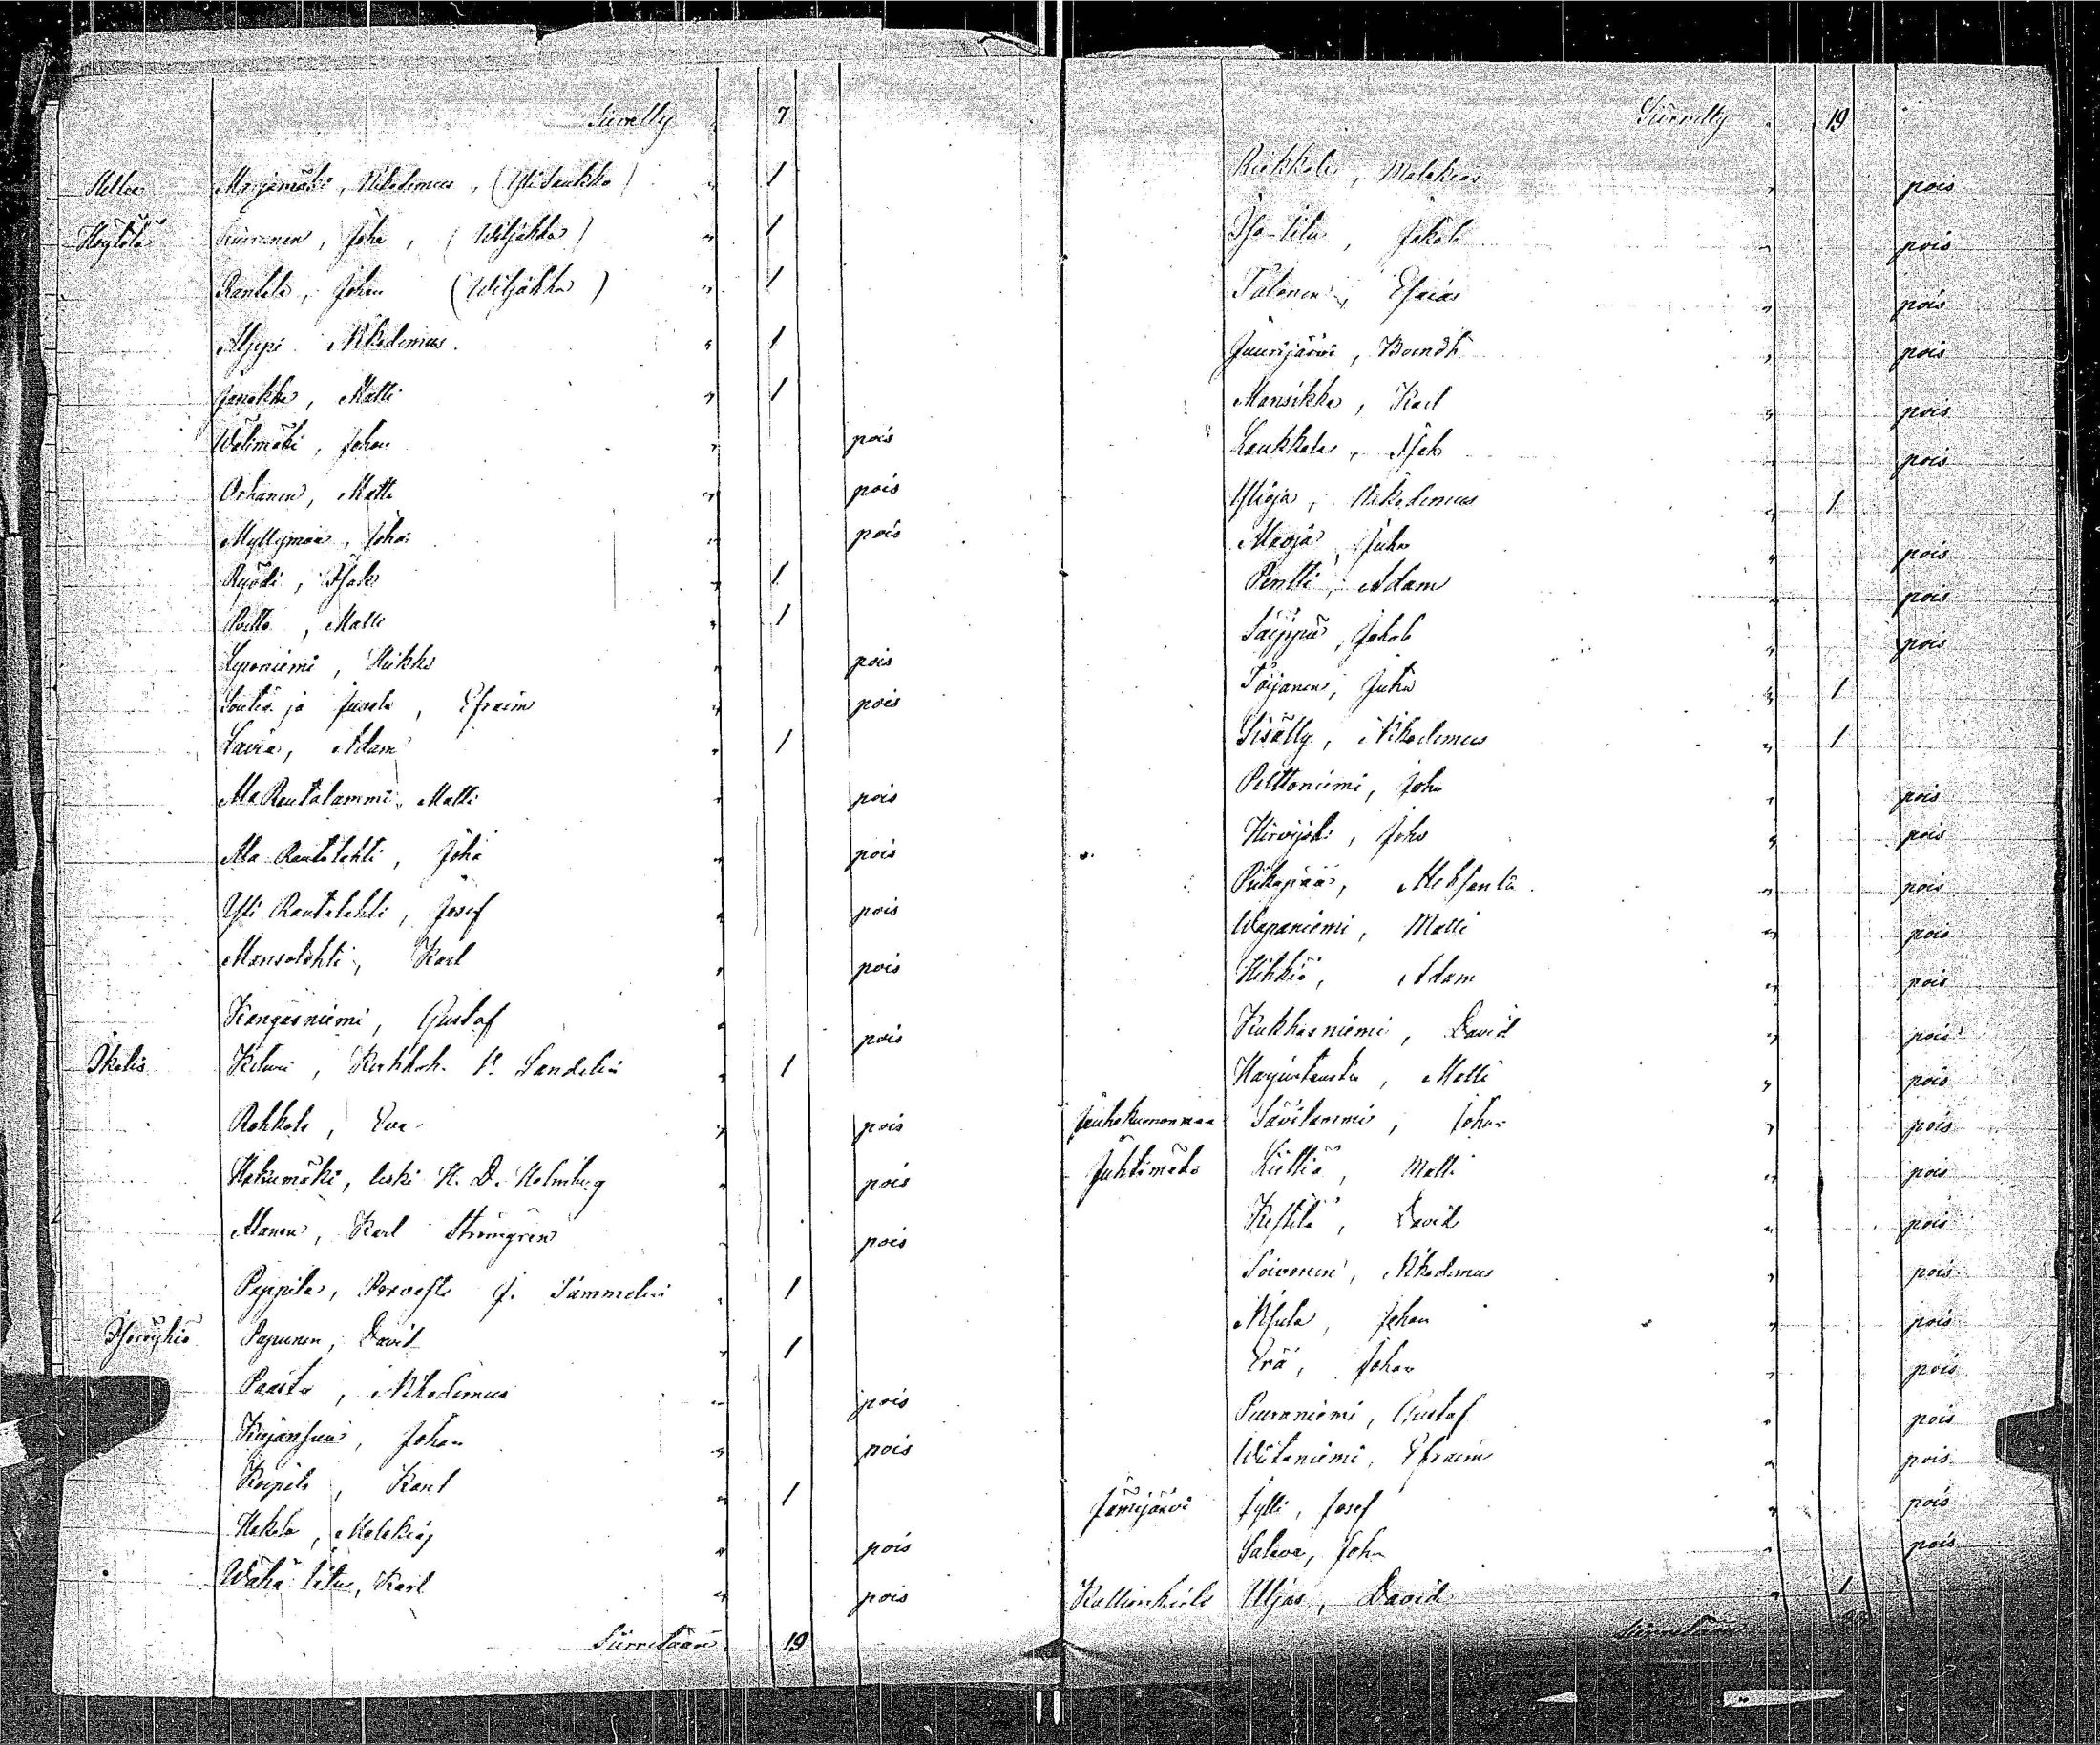 Siirretty 7
Marjamäki, Nikodemus, (Yli Saukko) " 1
Höytölä , Juha, (Wiljakka) " 1
Rantala, Johan (Wiljakka) " 1
Alppi Nikodemus " 1
Janakka, Matti " 1
Wälimäki, Johan " pois
Orhanen, Matti " pois
Myllymaa, Juha " pois
Ryödi, Isak " 1
Matti " 1
Leponiemi, Heikki " pois
ja Juvela, Efraim " pois
Lavia, Adam " 1
Ala Rautalammi, Matti " pois
Ala Rautalahti, Juha " pois
Yli Rautalahti, Josef " pois
Mansolahti, Karl " pois
Kangasniemi, Gustaf " pois
Ikalis Kelwi, Kirkkoh. Sandelin " 1
Rahkola, Eva " pois
Hakumäki, leski H. D. Holmberg " pois
Alanen, Karl Strömgren " pois
Pappila, Provasti J. Sammelin " 1
Isoröyhiö Papunen, David " 1
Paasto, Nikodemus " pois
Kujansuu, Johan " pois
Koipila, Karl " 1
Hakala, Malakias " pois
Wähä Litu, Karl " pois
Siirretään 19
Siirretty 19
Malakias " pois
Iso-Litu, Jakob " pois
Talonen, Esaias " pois
Juurijärvi, Berndt " pois
Mansikka, Karl " pois
Laukkala, Isak " pois
Ylioja, Nikodemus " 1
Marja, Juha " pois
Pentti, Adam " pois
Säippä, Jakob " pois
Töijanen, Juha " 1
Sisätty, Nikodemus " 1
Pelttoniemi, Juha " pois
Hirvijoki, Juha " pois
Piikapää, Aleksanta " pois
Wapaniemi, Matti " pois
Hikkiö, Adam " pois
Kukkasniemi, David " pois
Harjuntausta, Matti " pois
Jauhokuononmaa Savilammi, Johan " pois
Juhtimäki Liettiä, Matti " pois
Kestilä, David " pois
Soivonen, Nikodemus " pois
Johan " pois
Erä, Johan " pois
Puuraniemi, Gustaf " pois
Wiitaniemi, Efraim " pois
Jämijärvi Jylli, Josef " pois
Salava, Juha " pois
Kallionkieli Uljas, David " 1
Siirretään